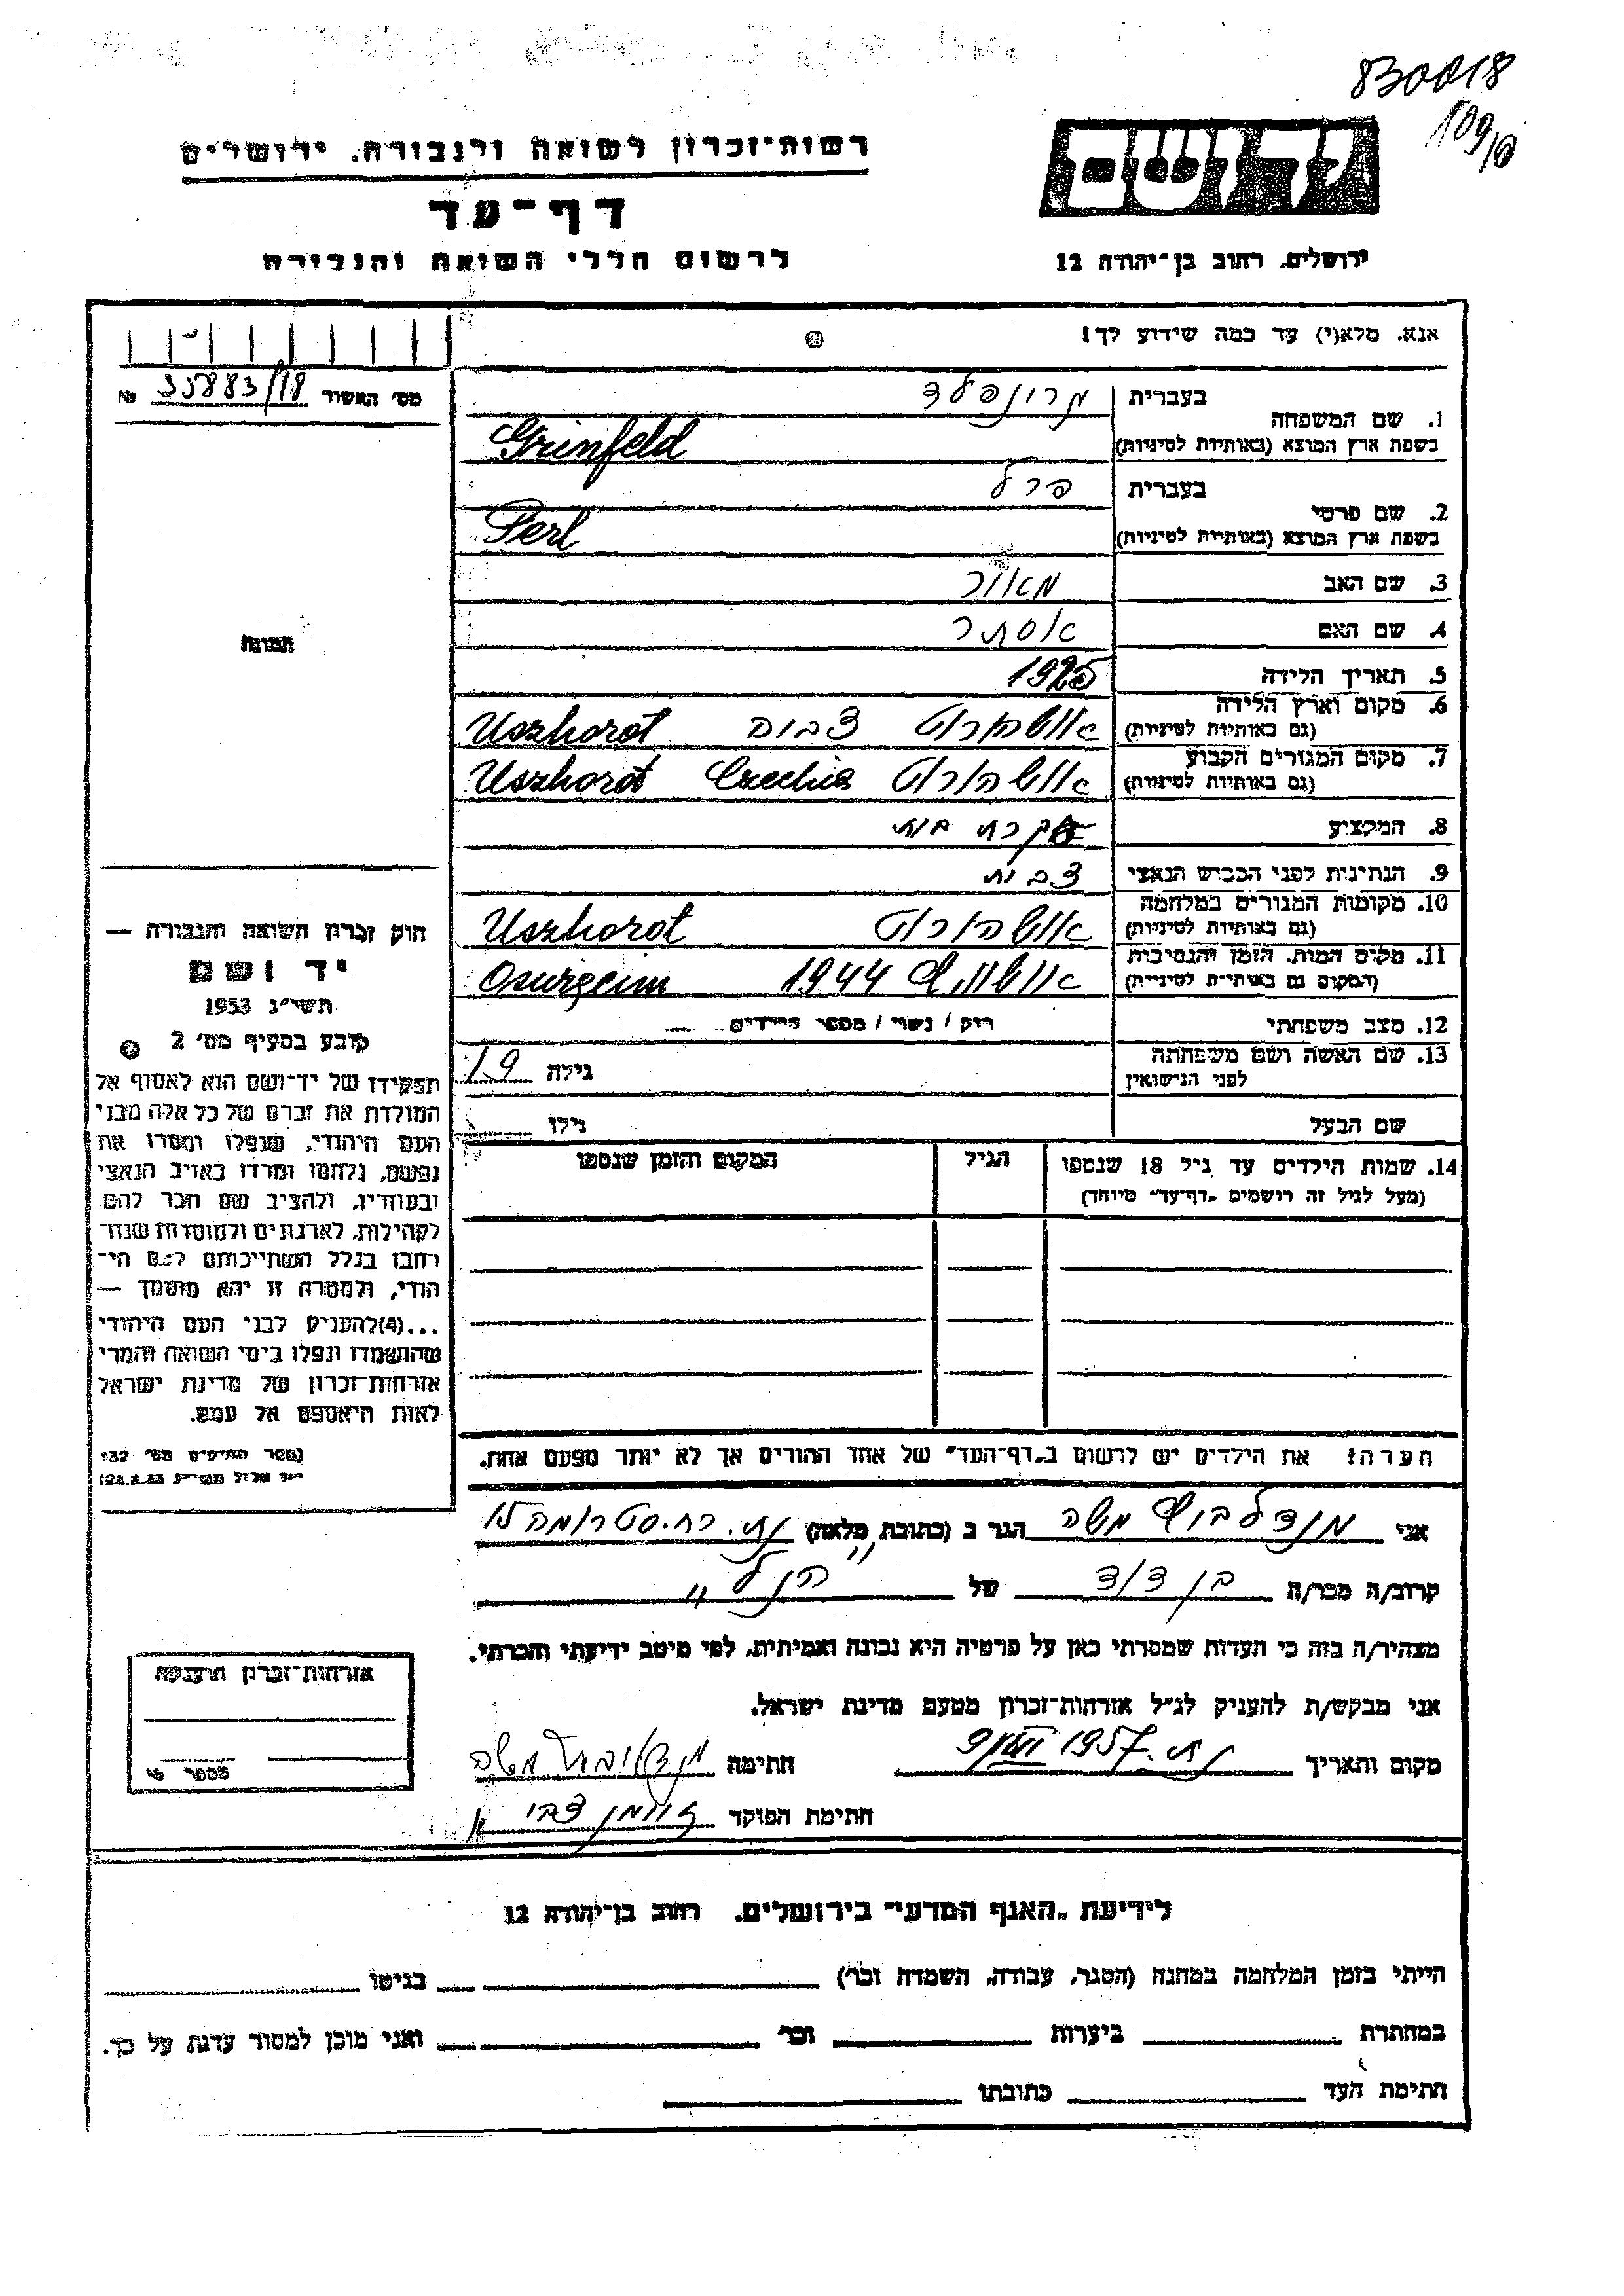 830018
109/
רשות־זכרון לשואה ולגבורה, ירושלים
דף־עד
לרשום חללי השואה והגבורה
יד ושם
ירושלים, רחוב בן־יהודה 12
אנא, מלא(י) עד כמה שידוע לך!
מס' האשור № 35883/18
1. שם המשפחה
בעברית גרונפלד
בשפת ארץ המוצא (באותיות לטיניות) Grünfeld
2. שם פרטי
בעברית פרל
בשפת ארץ המוצא (באותיות לטיניות) Perl
3. שם האב מאור
4. שם האם אסתר
5. תאריך הלידה 1925
6. מקום וארץ הלידה
(גם באותיות לטיניות) אוזשהורוט Uszhorot
7. מקום המגורים הקבוע
(גם באותיות לטיניות) אוזשהורוט Czechia Uszhorot
8. המקצוע עקרת בית
9. הנתינות לפני הכבוש הנאצי צכית
10. מקומות המגורים במלחמה
(גם באותיות לטיניות) אוזשהורוט Uszhorot
11. מקום המות, הזמן והנסיבות
(המקום גם באותיות לטיניות) 1944
12. מצב משפחתי רוק / נשוי / מספר הילדים
13. שם האשה ושם משפחתה
לפני הנישואין גילה 19
שם הבעל גילו
14. שמות הילדים עד גיל 18 שנספו
(מעל לגיל זה רושמים „דף־עד" מיוחד)
הגיל
המקום והזמן שנספו
הערה! את הילדים יש לרשום ב„דף־העד" של אחד ההורים אך לא יותר מפעם אחת.
תמונה
חוק זכרון השואה והגבורה —
יד ושם
תשי"ג 1953
קובע בסעיף מס' 2
תפקידו של יד־ושם הוא לאסוף אל
המולדת את זכרם של כל אלה מבני
העם היהודי, שנפלו ומסרו את
נפשם, נלחמו ומרדו באויב הנאצי
ובעוזריו, ולהציב שם וזכר להם
לקהילות, לארגונים ולמוסדות שנח־
רבו בגלל השתייכותם לעם הי־
הודי, ולמטרה זו יהא מוסמך —
...(4)להעניק לבני העם היהודי
שהושמדו ונפלו בימי השואה והמרי
אזרחות־זכרון של מדינת ישראל
לאות היאספם אל עמם.
(ספר החוקים מס' 132
אני מנדלבוים משה הגר ב (כתובת מלאה)
קרוב/ה מכר/ה בן דוד של "הנ"ל"
מצהיר/ה בזה כי העדות שמסרתי כאן על פרטיה היא נכונה ואמיתית, לפי מיטב ידיעתי והכרתי.
אני מבקש/ת להעניק לנ"ל אזרחות־זכרון מטעם מדינת ישראל.
מקום ותאריך 1957 חתימה מנדלבוים משה
חתימת הפוקד צבי
אזרחות־זכרון הוענקה
מספר №
לידיעת „האגף המדעי" בירושלים, רחוב בן־יהודה 12
הייתי בזמן המלחמה במחנה (הסגר, עבודה, השמדה וכו') בגיטו
במחתרת ביערות וכו' ואני מוכן למסור עדות על כך.
חתימת העד כתובתו